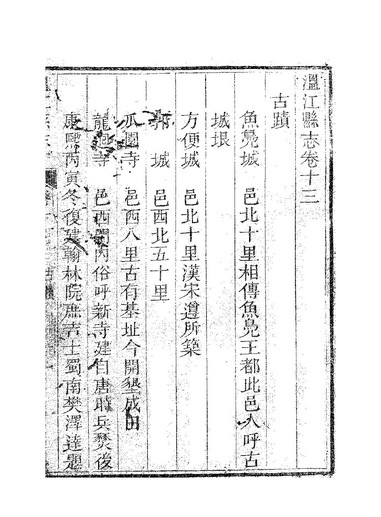 溫江縣志卷十三
古蹟
魚鳧城 邑北十里相傳魚鳧王都此邑人呼古
城垠
方便城 邑北十里漢宋遵所築
城 邑西北五十里
瓜園寺 邑西八里古有基址今開墾成田
龍興寺 邑西門內俗呼新寺建自唐時兵燹後
康熙丙寅冬復建翰林院庶吉士蜀南樊澤達題